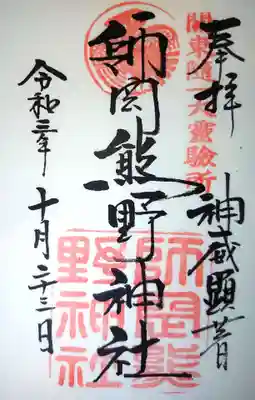 奉拝
神威顕著
関東随一大霊験所
師岡熊野神社
師岡熊野神社
令和三年 十月二十三日